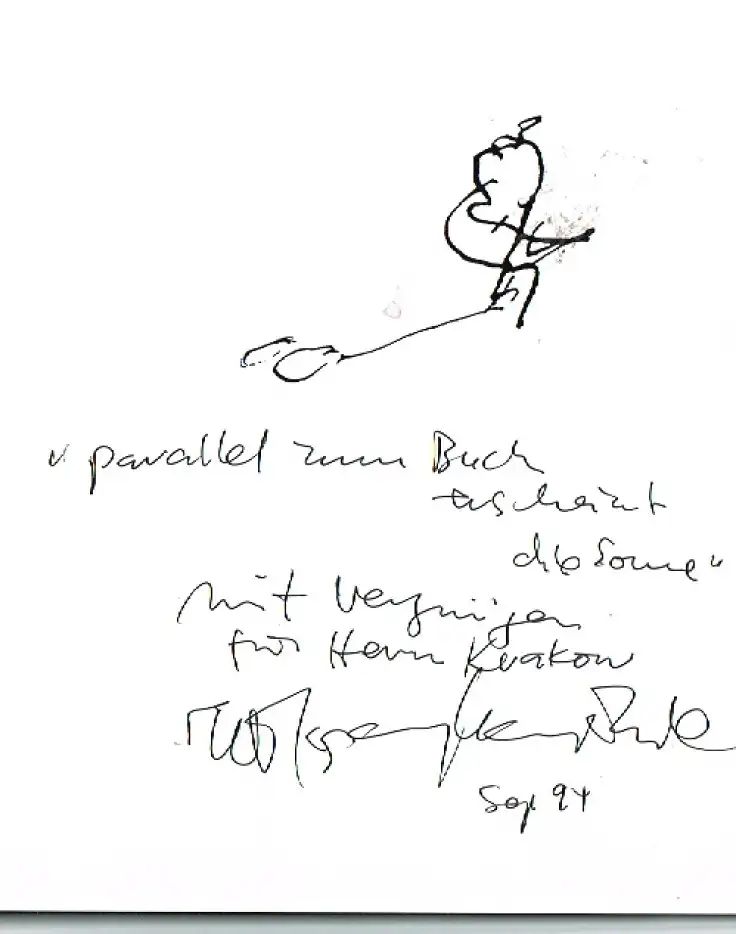 "parallel zum Buch
erscheint
die Sonne"
mit Vergnügen
für Herrn Krakow
Wolfgang
Sep 94